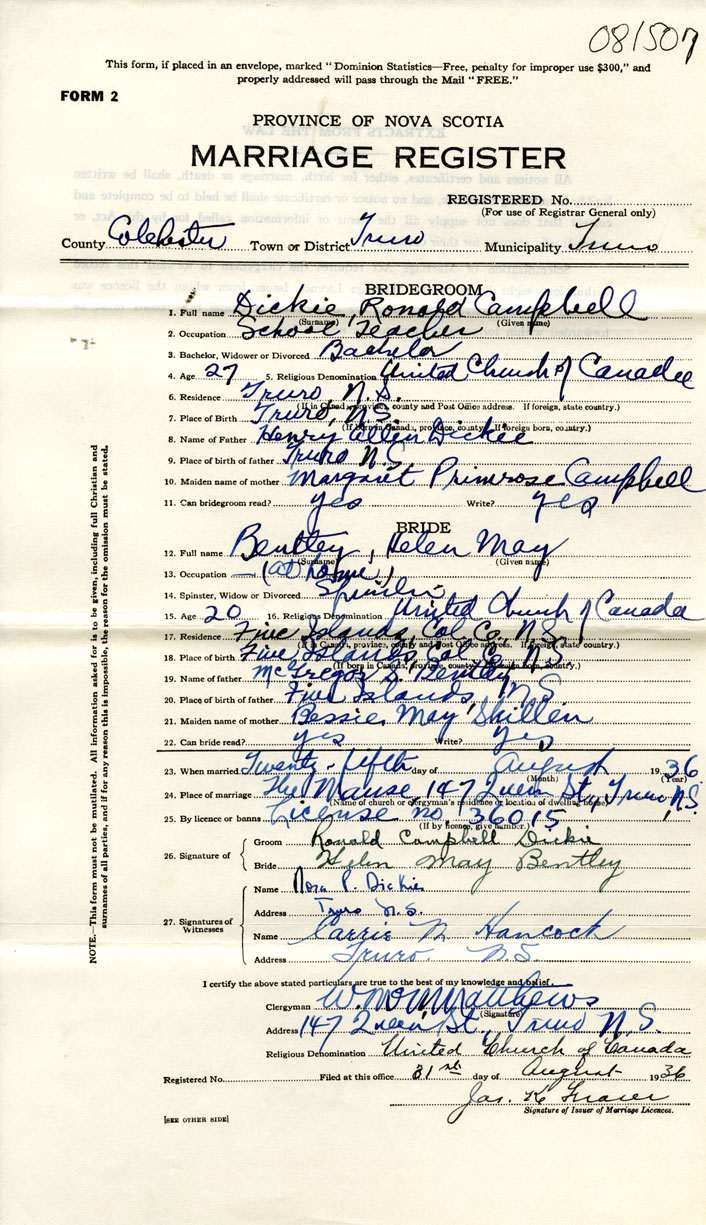 081507
This form, if placed in an envelope, marked "Dominion Statistics—Free, penalty for improper use $300," and
properly addressed will pass through the Mail "FREE."
FORM 2
PROVINCE OF NOVA SCOTIA
MARRIAGE REGISTER
REGISTERED No.
(For use of Registrar General only)
County Colchester Town or District Truro Municipality Truro
BRIDEGROOM
1. Full name Dickie, Ronald Campbell
(Surname) (Given name)
2. Occupation School Teacher
3. Bachelor, Widower or Divorced Bachelor
4. Age 27 5. Religious Denomination United Church of Canada
6. Residence Truro, N.S.
(If in Canada, province, county and Post Office address. If foreign, state country.)
7. Place of Birth Truro, N.S.
(If born in Canada, province, county. If foreign born, country.)
8. Name of Father Henry Allen Dickie
9. Place of birth of father Truro N.S.
10. Maiden name of mother Margaret Primrose Campbell
11. Can bridegroom read? yes Write? yes
BRIDE
12. Full name Bentley, Helen May
(Surname) (Given name)
13. Occupation — (at home)
14. Spinster, Widow or Divorced Spinster
15. Age 20 16. Religious Denomination United Church of Canada
17. Residence Five Islands, Col. Co., N.S.
(If in Canada, province, county and Post Office address. If foreign, state country.)
18. Place of birth Five Islands, Col. Co., N.S.
(If born in Canada, province, county. If foreign born, country.)
19. Name of father McGregor S. Bentley
20. Place of birth of father Five Islands, N.S.
21. Maiden name of mother Bessie May Skillen
22. Can bride read? yes Write? yes
23. When married Twenty-fifth day of August 1936
(Month) (Year)
24. Place of marriage The Manse, 147 Queen St., Truro, N.S.
(Name of church or clergyman's residence or location of dwelling house)
25. By licence or banns License no. 36015
(If by licence, give number.)
26. Signature of Groom Ronald Campbell Dickie
Bride Helen May Bentley
27. Signatures of Witnesses Name Nora P. Dickie
Address Truro N.S.
Name Carrie M Hancock
Address Truro N.S.
I certify the above stated particulars are true to the best of my knowledge and belief.
Clergyman W. McM Matthews
(Signature)
Address 147 Queen St., Truro N.S.
Religious Denomination United Church of Canada
Registered No. Filed at this office 31st day of August 1936
Jas. K. Fraser
Signature of Issuer of Marriage Licences.
[SEE OTHER SIDE]
NOTE.—This form must not be mutilated. All information asked for is to be given, including full Christian and
surnames of all parties, and if for any reason this is impossible, the reason for the omission must be stated.